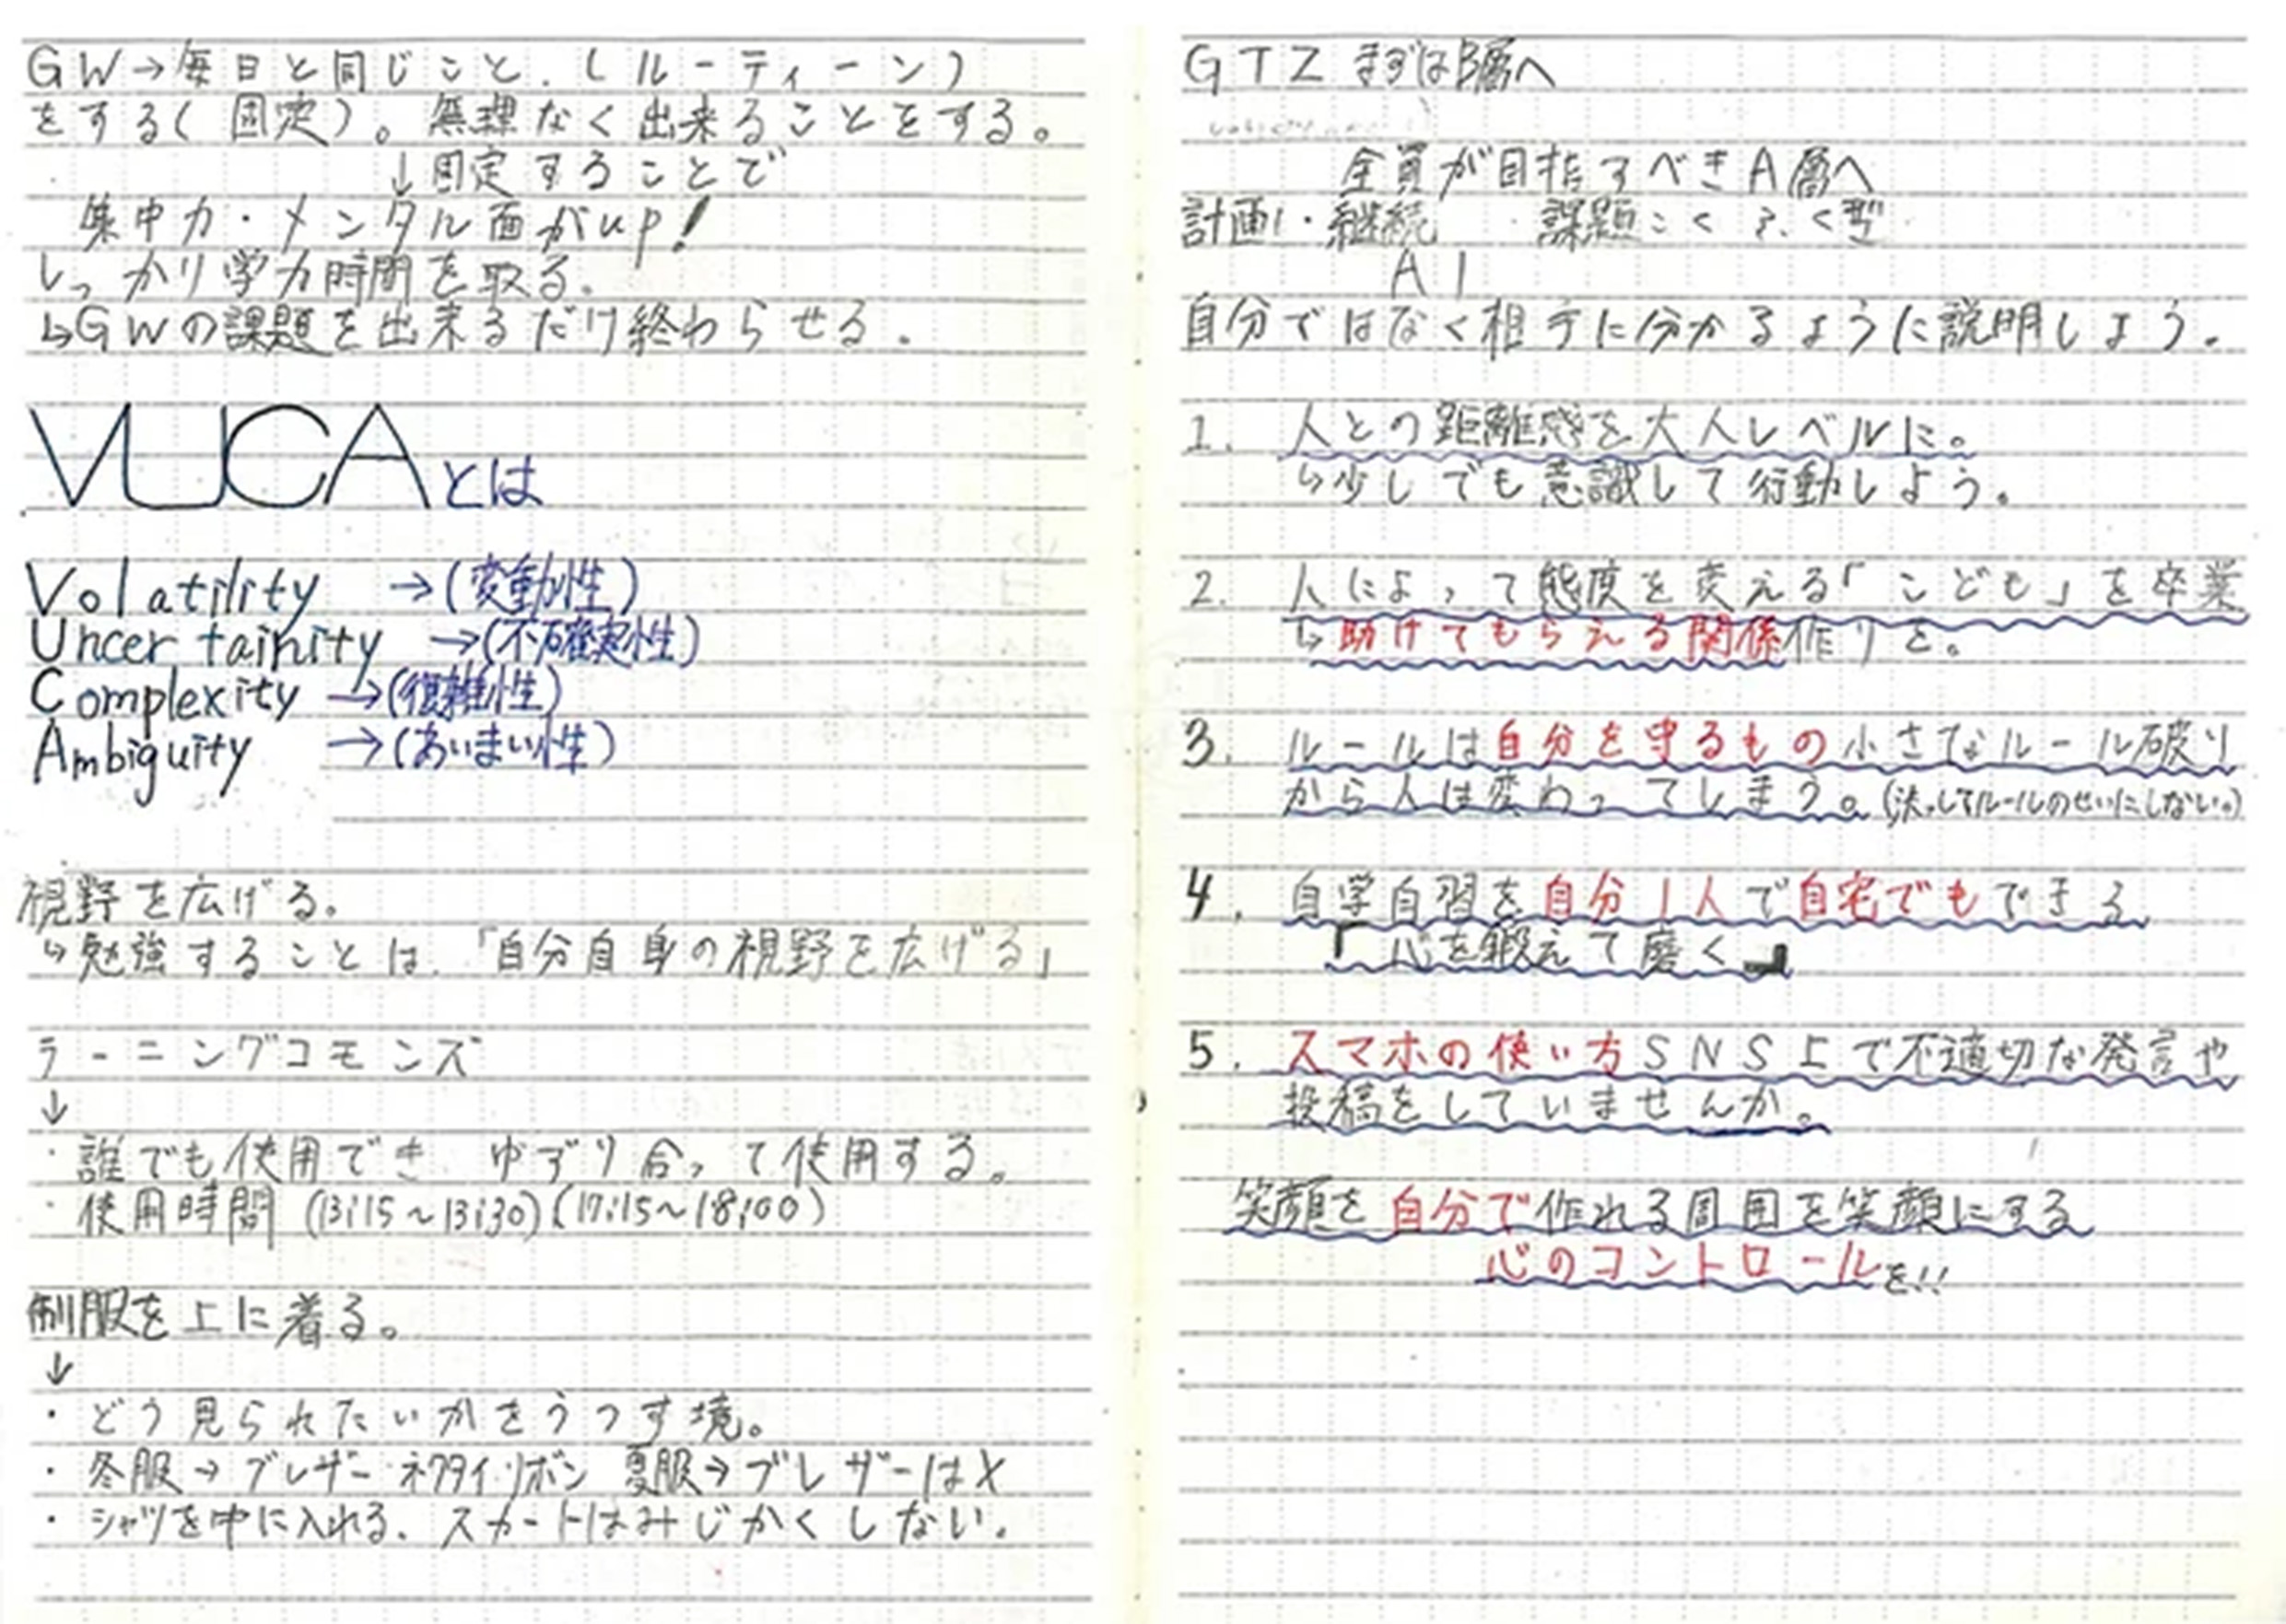 GW→毎日と同じこと.(ルーティーン)
をする(固定)。無理なく出来ることをする。
↓固定することで
集中力・メンタル面がup!
しっかり学力時間を取る.
↳GWの課題を出来るだけ終わらせる.
VUCAとは
Volatility →(変動性)
Uncertainity →(不確実性)
Complexity →(復雑性)
Ambiguity →(あいまい性)
視野を広げる.
↳勉強することは.「自分自身の視野を広げる」
ラーニングコモンズ
↓
・誰でも使用でき ゆずり合って使用する。
・使用時間 (13:15~13:30)(17:15~18:00)
制服を上に着る。
↓
・どう見られたいかをうつす境。
・冬服→ブレザー・ネクタイ・リボン 夏服→ブレザーはX
・シャツを中に入れる. スカートはみじかくしない.
GTZ まずはB層へ
全員が目指すべきA層へ
計画・継続 課題
A1
自分ではなく相手に分かるように説明しよう.
1. 人との距離感を大人レベルに。
↳少しでも意識して行動しよう。
2. 人によって態度を変える「こども」を卒業
↳助けてもらえる関係作りを。
3. ルールは自分を守るもの小さなルール破り
から人は変わってしまう。(決してルールのせいにしない。)
4. 自学自習を自分1人で自宅でもできる
「心を鍛えて磨く」
5. スマホの使い方SNS上で不適切な発言や
投稿をしていませんか。
笑顔を自分で作れる周囲を笑顔にする
心のコントロールを!!